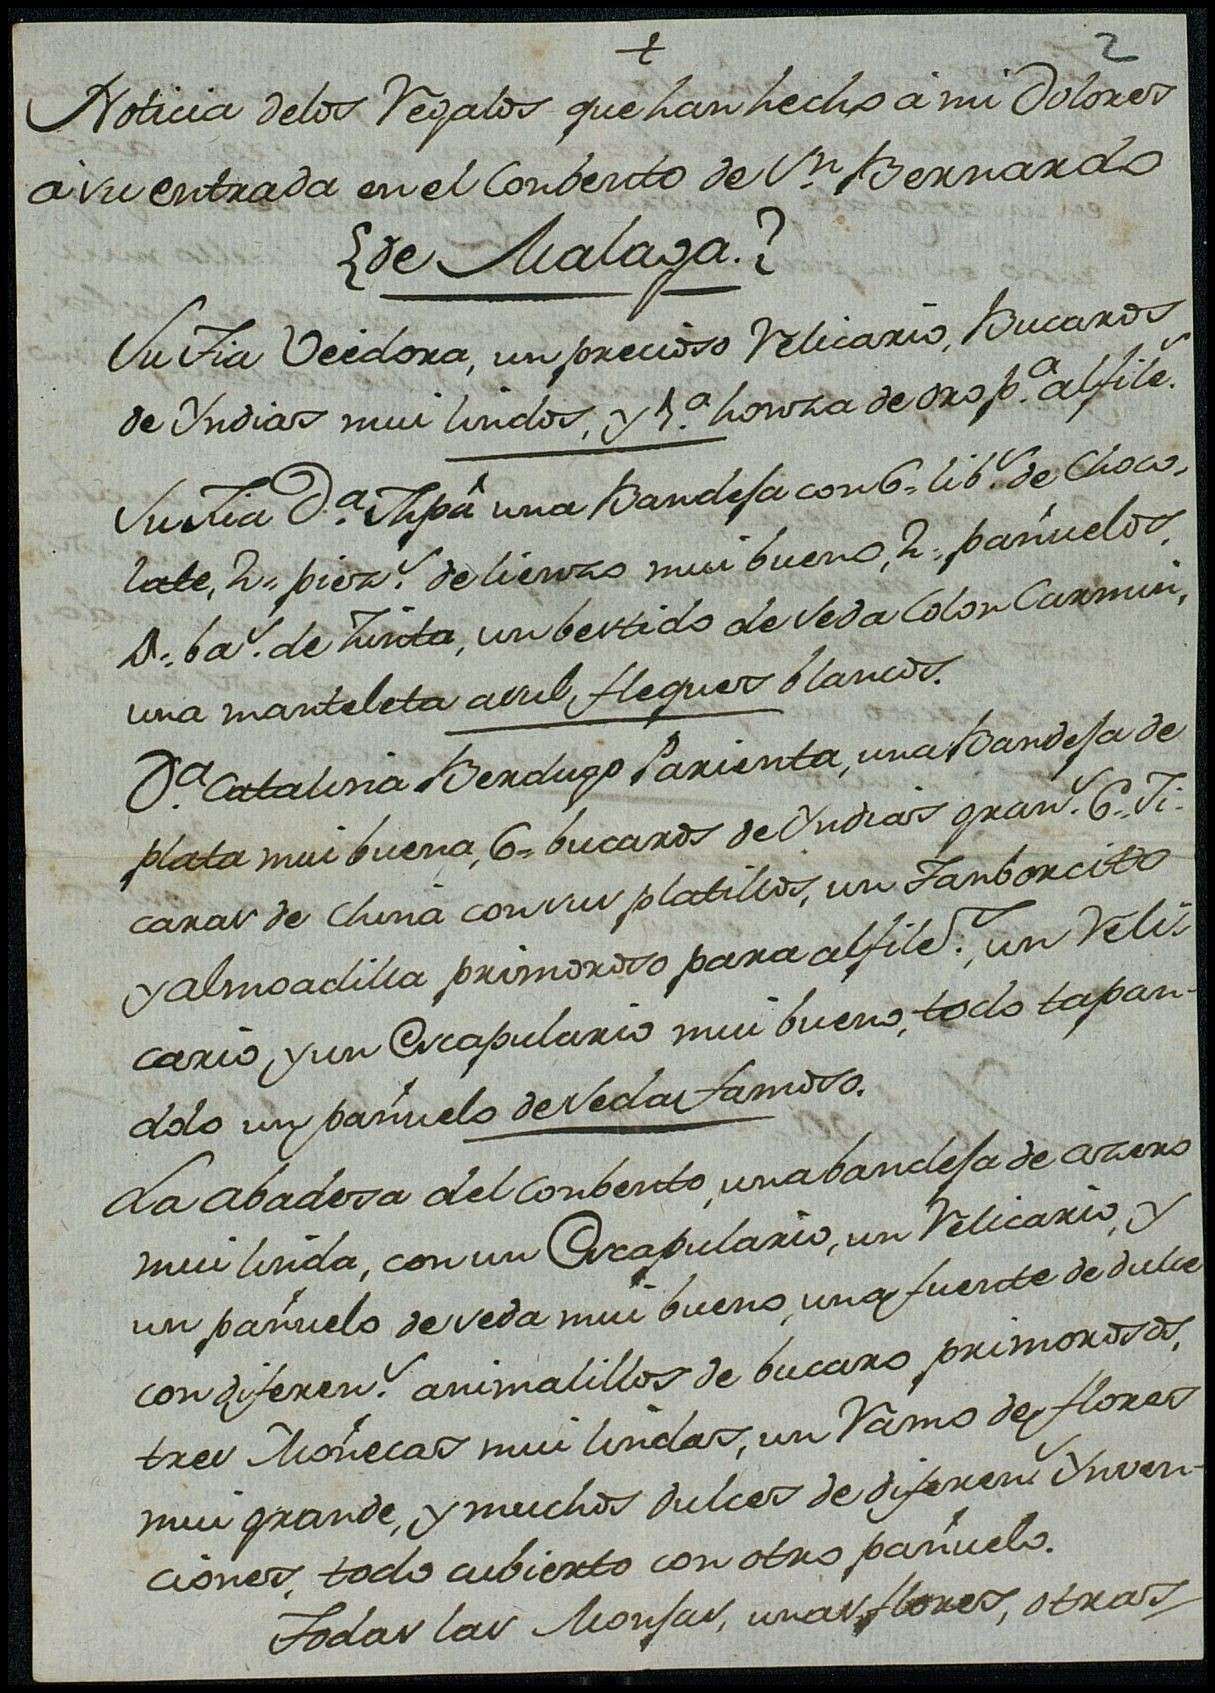 + 2
Noticia delos Regalos que han hecho à mi Dolores
à su entrada en el Conbento de Sn. Bernardo
{de Malaga.}
Su tia Veedora, un precioso Relicario, Bucaros
de Yndias mui lindos, y 1.a honza de oro p.a alfile.s
Su tia D.a Jhpâ una Bandeja con 6= lib.s de Choco,
late, 2= piez.s de lienzo mui bueno, 2= pañuelos,
1= ba.s de Zinta, un bestido de seda Color Carmin,
una manteleta asul, fleques blancos.
D.a Catalina Berdugo Parienta, una Bandeja de
plata mui buena, 6= bucaros de Yndias gran.s 6= Ji-
caras de China con sus platillos, un Tanborcito
y almoadilla primoroso para alfile.s, un Reli-
cario, y un Escapulario mui bueno, todo tapan-
dolo un pañuelo de seda famoso.
La abadesa del Conbento, una bandeja de azero
mui linda, con un Escapulario, un Relicario, y
un pañuelo de seda mui bueno, una fuente de dulce
con diferen.s animalillos de bucaro primorosos,
tres Moñecas mui lindas, un Ramo de flores
mui grande, y muchos dulces de diferen.s Ynven-
ciones, todo cubierto con otro pañuelo.
Todas las Monjas, unas flores, otras